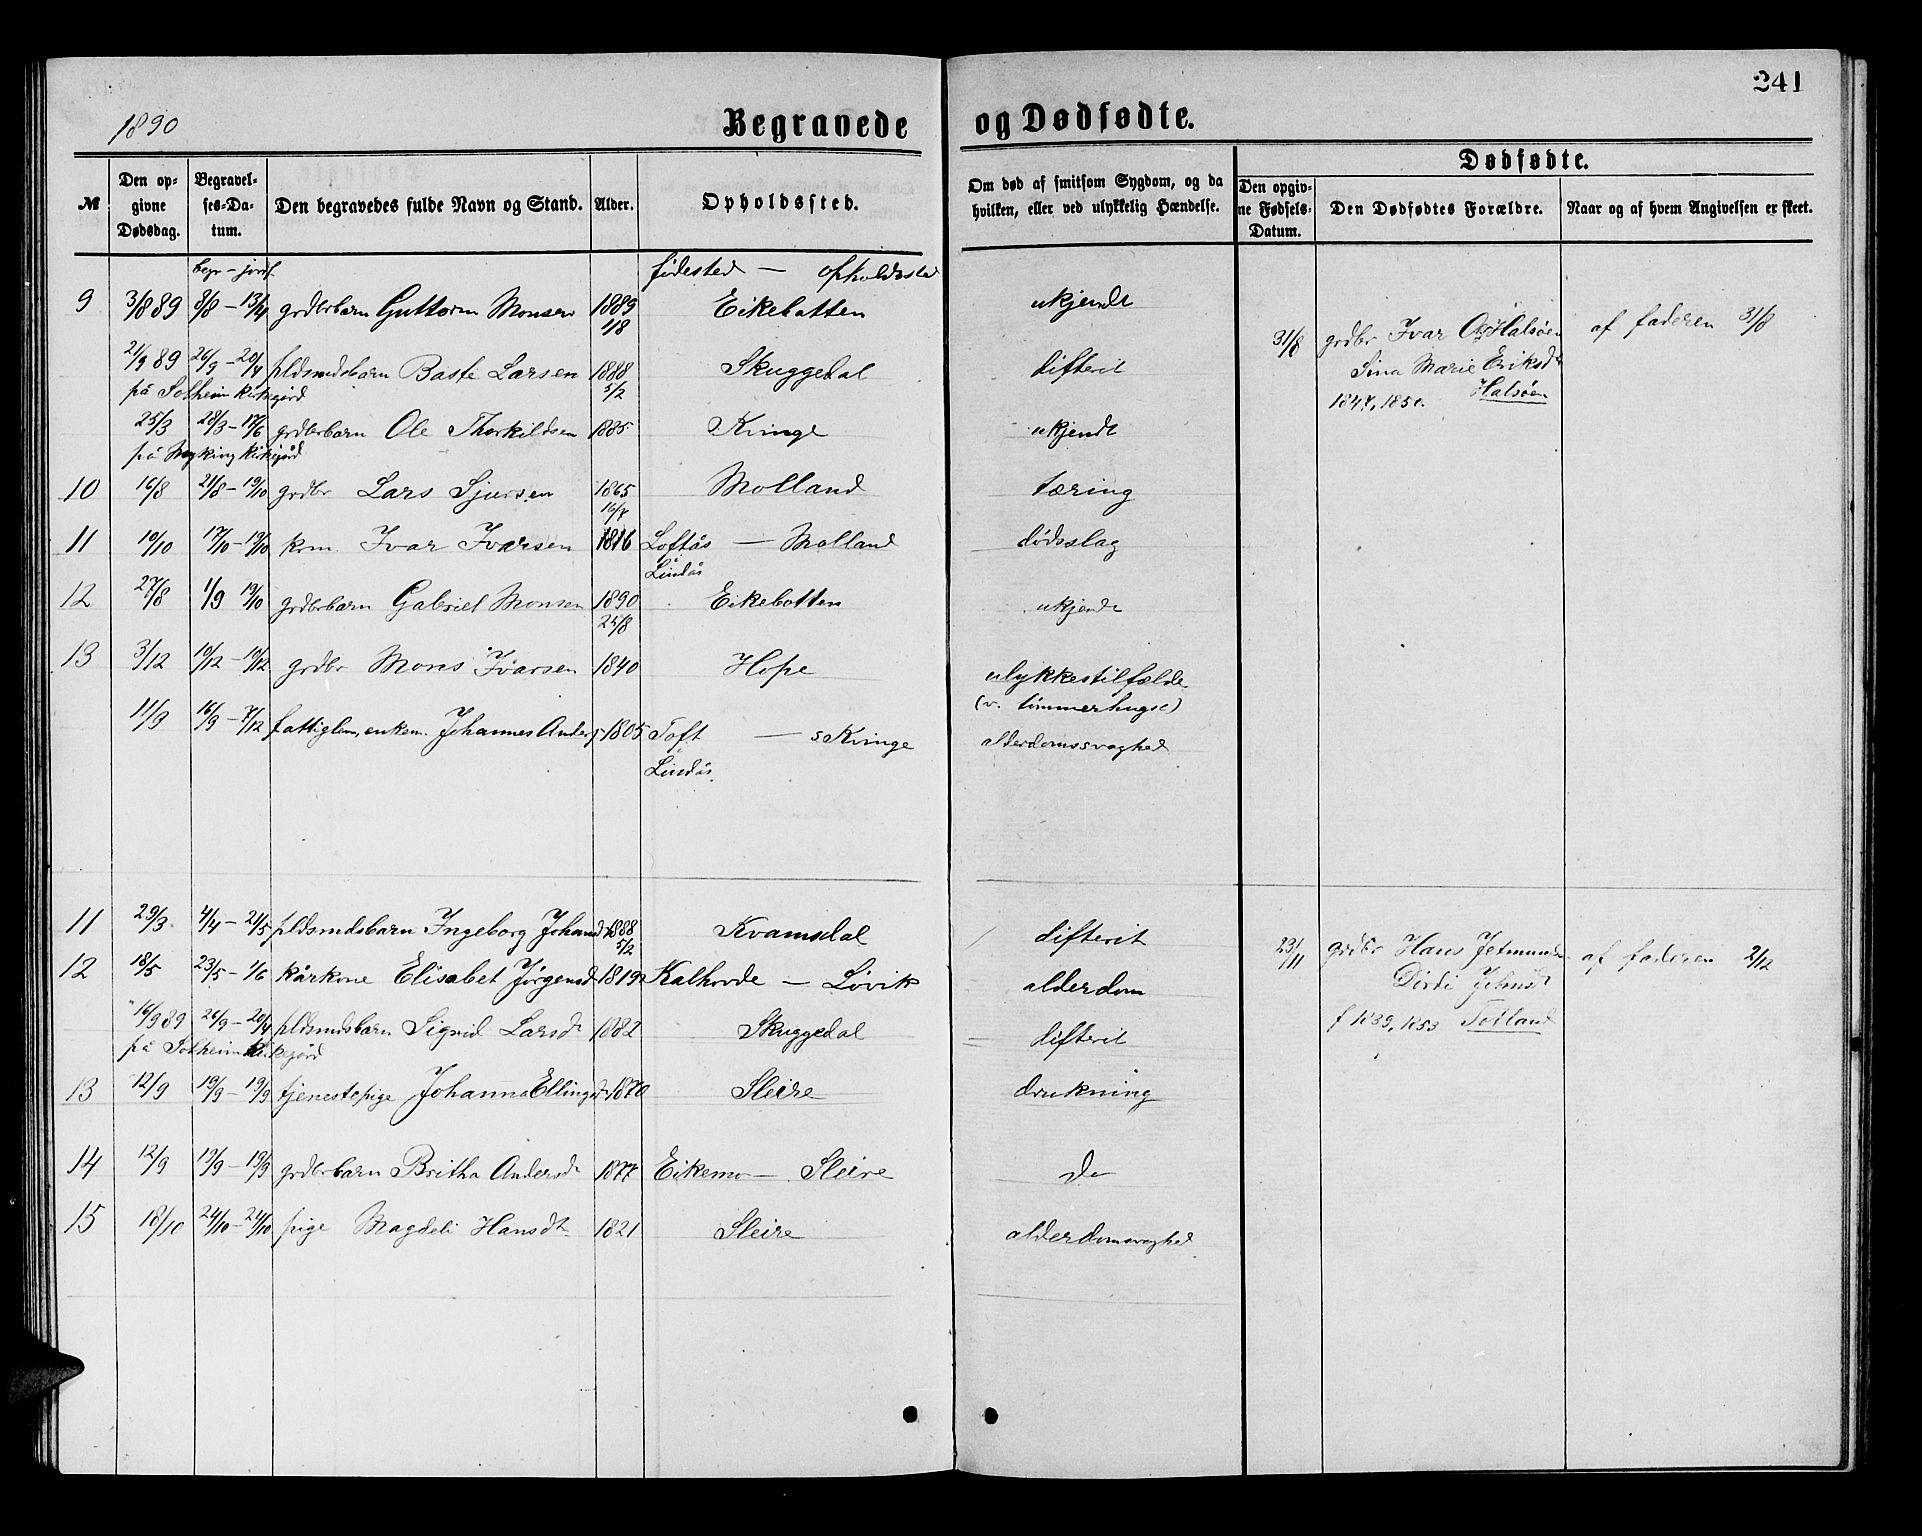 241
1890
Begravede og Dødfødte.
№ Den opgivne Dødsdag. Begravelses-Datum. Den begravedes fulde Navn og Stand. Alder. Opholdssted.
Om død af smitsom Sygdom, og da hvilken, eller ved ulykkelig Hændelse.
Dødfødte.
Den opgivne Fødsels-Datum. Den Dødfødtes Forældre. Naar og af hvem Angivelsen er skeet.
begr – jordf. fødested — opholdssted
9 3/8 89 8/8 – 13/4 grdbrbarn Guttorm Monsen 1889 1/8 Eikebotten ukjendt
21/9 89 26/9 – 20/4 pldsmdsbarn Baste Larsen 1888 5/2 Skuggedal difterit
på Solheim kirkegård
25/3 28/3 – 17/6 grdbrbarn Ole Thorkildsen 1885 Kringe ukjendt
på Myking kirkegård
10 16/8 21/8 – 19/10 grdbr Lars Sjursen 1865 16/7 Molland tæring
11 10/10 17/10 – 19/10 krm. Ivar Ivarsen 1816 Loftås — Molland dødsslag
Lindås
12 27/8 1/9 19/10 grdbrbarn Gabriel Monsen 1890 25/8 Eikebotten ukjendt
13 3/12 10/12 – 10/12 grdbr Mons Ivarsen 1840 Hope ulykkestilfælde
(v. tømmerhugst)
11/9 16/9 – 7/12 fattiglem, enkem. Johannes Anders. 1805 Toft — Kringe alderdomssvaghed
Lindås.
31/8 grdbr Ivar Halsøen af faderen 31/8
Sina Marie Eriksdt
1847, 1850. Halsøen
11 29/3 4/4 – 21/5 pldsmdsbarn Ingeborg Johansdt 1888 5/2 Kvamsdal difterit
12 18/5 23/5 – 1/6 kårkone Elisabet Jørgensd 1819 Kalhovde — Løvik alderdom
16/9 89 26/9 – 20/4 pldsmdsbarn Sigrid Larsdt 1882 Skuggedal difterit
på Solheim kirkegård
13 12/9 19/9 – 19/9 tjenestepige Johanna Ellingsd. 1870 Sleire drukning
14 12/9 19/9 – 19/9 grdbrbarn Britha Andersdt 1877 Eikemo — Sleire do
15 18/10 24/10 – 24/10 pige Magdeli Hansdt 1821 Sleire alderdomsvaghed
23/11 grdbr Hans Jetmunds. af faderen 2/12
Dorti Johnsdt
f 1839, 1853 Totland